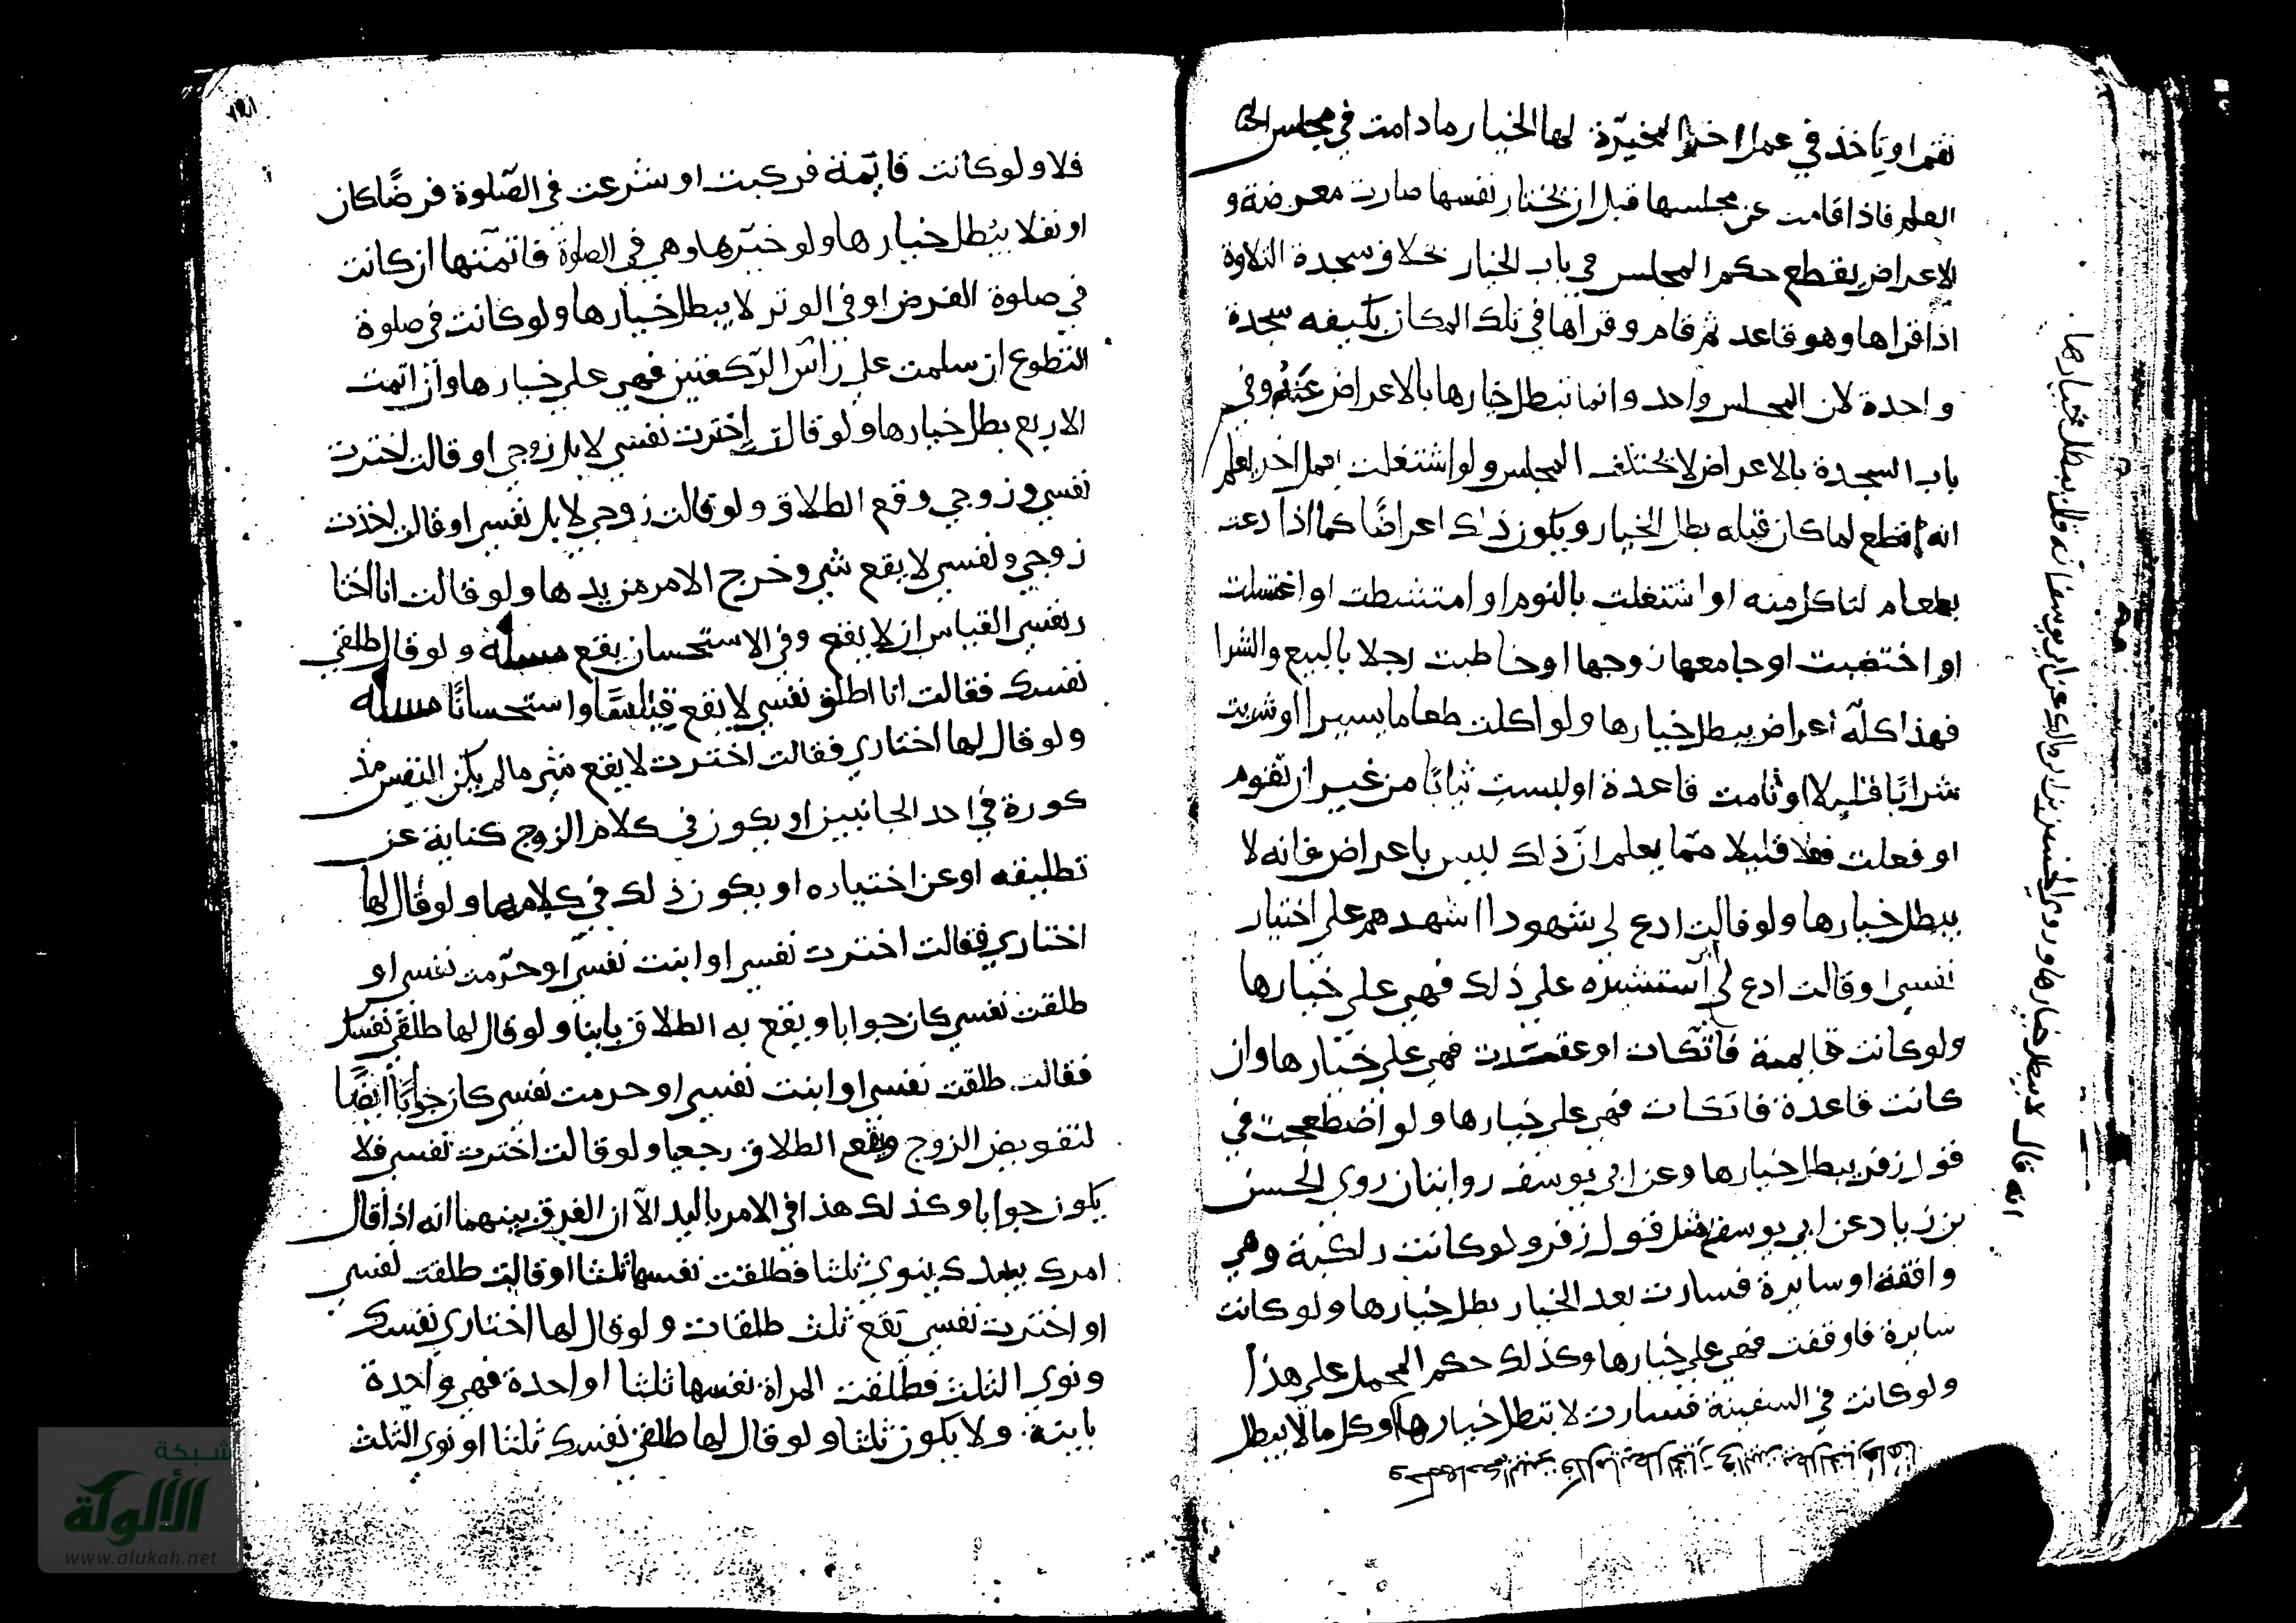 تقم او يأخذ في عمل اخر المخيّرة لها الخيار مادامت في مجلس
العلم فاذا قامت عن مجلسها قبل ان يختار نفسها صارت معرضة و
الاعراض يقطع حكم المجلس في باب الخيار بخلاف سجدة التلاوة
اذا قراها وهو قاعد ثم قام وقراها في تلك المكان يكيفه سجدة
واحدة لان المجلس واحد وانما تبطل خيارها بالاعراض عنه وفي
باب السجدة بالاعراض لا يختلف المجلس ولو اشتغلت بعمل اخر يعلم
انه قطع لما كان قبله بطل الخيار ويكون ذلك اعراضًا كما اذا دعت
بطعام لتاكل منه او اشتغلت بالنوم او امتشطت او اغتسلت
او اختضبت او جامعها زوجها او خاطبت رجلا بالبيع والشرا
فهذا كلّه اعراض يبطل خيارها ولو اكلت طعاما يسيرا او شربت
شرابًا قليلا او نامت قاعدة او لبست ثيابًا من غير ان تقوم
او فعلت فعلا قليلا ممّا يعلم انّ ذلك ليس باعراض فانه لا
يبطل خيارها ولو قالت ادع لي شهودا اشهدهم على اختيار
نفسي او قالت ادع لي استشيره على ذلك فهي على خيارها
ولو كانت قايمة فاتّكات او قعدت فهي على خيارها وان
كانت قاعدة فاتكات فهي على خيارها ولو اضطجعت في
قول زفر يبطل خيارها وعن ابي يوسف روايتان روي الحسن
بن زياد عن ابي يوسف مثل قول زفر ولو كانت راكبة وهي
واقفة او سايرة فسارت بعد الخيار بطل خيارها ولو كانت
سايرة فاوقفت فهي على خيارها وكذلك حكم المحمل على هذا
ولو كانت في السفينة فسارت لا تبطل خيارها وكل ما لا يبطل
انه قال لا يبطل خيارها وروى الحسن بن ابي مالك عن ابي يوسف انه قال يبطل خيارها
فلا ولو كانت قايمة فركبت او شرعت في الصّلوة فرضًا كان
او نفلا يبطل خيارها ولو خيّرها وهي في الصلوة فاتمّتها ان كانت
في صلوة الفرض او في الوتر لا يبطل خيارها ولو كانت في صلوة
التطوع ان سلمت على رأس الرّكعتين فهي على خيارها وان اتمت
الاربع بطل خيارها ولو قالت اخترت نفسي لا بل زوجي او قالت اخترت
نفسي وزوجي وقع الطلاق ولو قالت زوجي لا بل نفسي او قالت اخذت
زوجي ونفسي لا يقع شي وخرج الامر من يدها ولو قالت انا اختا
ر نفسي القياس ان لا يقع وفي الاستحسان يقع مسلة ولو قال طلقي
نفسك فقالت انا اطلق نفسي لا يقع قياسًا واستحسانًا مسلة
ولو قال لها اختاري فقالت اخترت لا يقع شي ما لم يكن النفس مذ
كورة في احد الجانبين او يكون في كلام الزوج كناية عن
تطليقه او عن اختياره او يكون ذلك في كلامهما ولو قال لها
اختاري فقالت اخترت نفسي او ابنت نفسي او حرّمت نفسي او
طلقت نفسي كان جوابا ويقع به الطلاق باينا ولو قال لها طلقي نفسك
فقالت طلقت نفسي او ابنت نفسي او حرمت نفسي كان جوابًا ايضًا
لتفويض الزوج ويقع الطلاق رجعيا ولو قالت اخترت نفسي فلا
يكون جوابا وكذلك هذا في الامر باليد الّا ان الفرق بينهما انه اذا قال
امرك بيدك ينوي ثلثا فطلقت نفسها ثلثا او قالت طلقت نفسي
او اخترت نفسي تقع ثلث طلقات ولو قال لها اختاري نفسك
ونوى الثلث فطلقت المراة نفسها ثلثا او احدة فهي واحدة
باينة ولا يكون ثلثا ولو قال لها طلقي نفسك ثلثا او نوى الثلث
شبكة
الألوكة
www.alukah.net